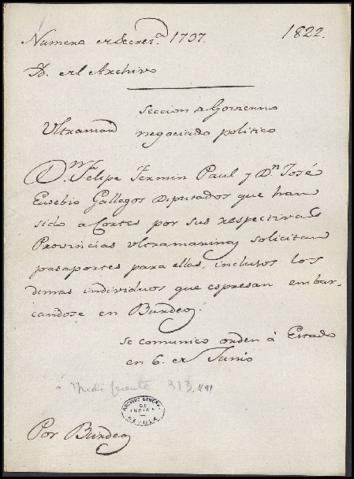 Numero de Decres.ᵃ 1737. 1822.
D. del Archivo
Seccion de Govierno
Ultramar negociado politico
D.ⁿ Felipe Fermin Paul y D.ⁿ José
Eusebio Gallegos Diputados que han
sido a Cortes por sus respectivas
Provincias ultramarinas solicitan
pasaportes para ellas, inclusos los
demas individuos que espresan embar-
candose en Burdeos.
Se comunico orden á Estado
en 6. de Junio
á Indif
313
ARCHIVO GENERAL
DE
INDIAS
SEVILLA
Por Burdeos